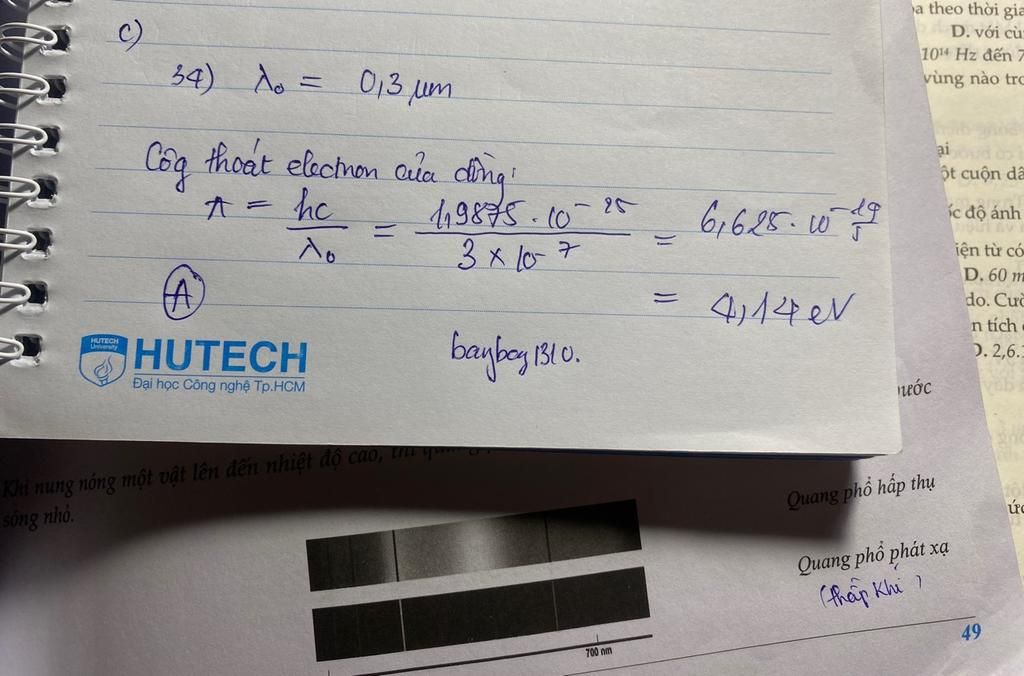 c)
34) λ₀ = 0,3 μm
Côg thoát electron của đồng:
A = hc/λ₀ = 1,9875 · 10⁻²⁵ / 3 × 10⁻⁷ = 6,625 · 10⁻¹⁹ J
= 4,14 eV
A
bayboy1310.
HUTECH
University
HUTECH
Đại học Công nghệ Tp.HCM
Khi nung nóng một vật lên đến nhiệt độ cao, thì
sóng nhỏ.
Quang phổ hấp thụ
Quang phổ phát xạ
(thấp khí)
700 nm
49
theo thời gia
D. với cù
10¹⁴ Hz đến 7
vùng nào tro
ại
ột cuộn dâ
ốc độ ánh
iện từ có
D. 60 m
do. Cườ
n tích
D. 2,6.
nước